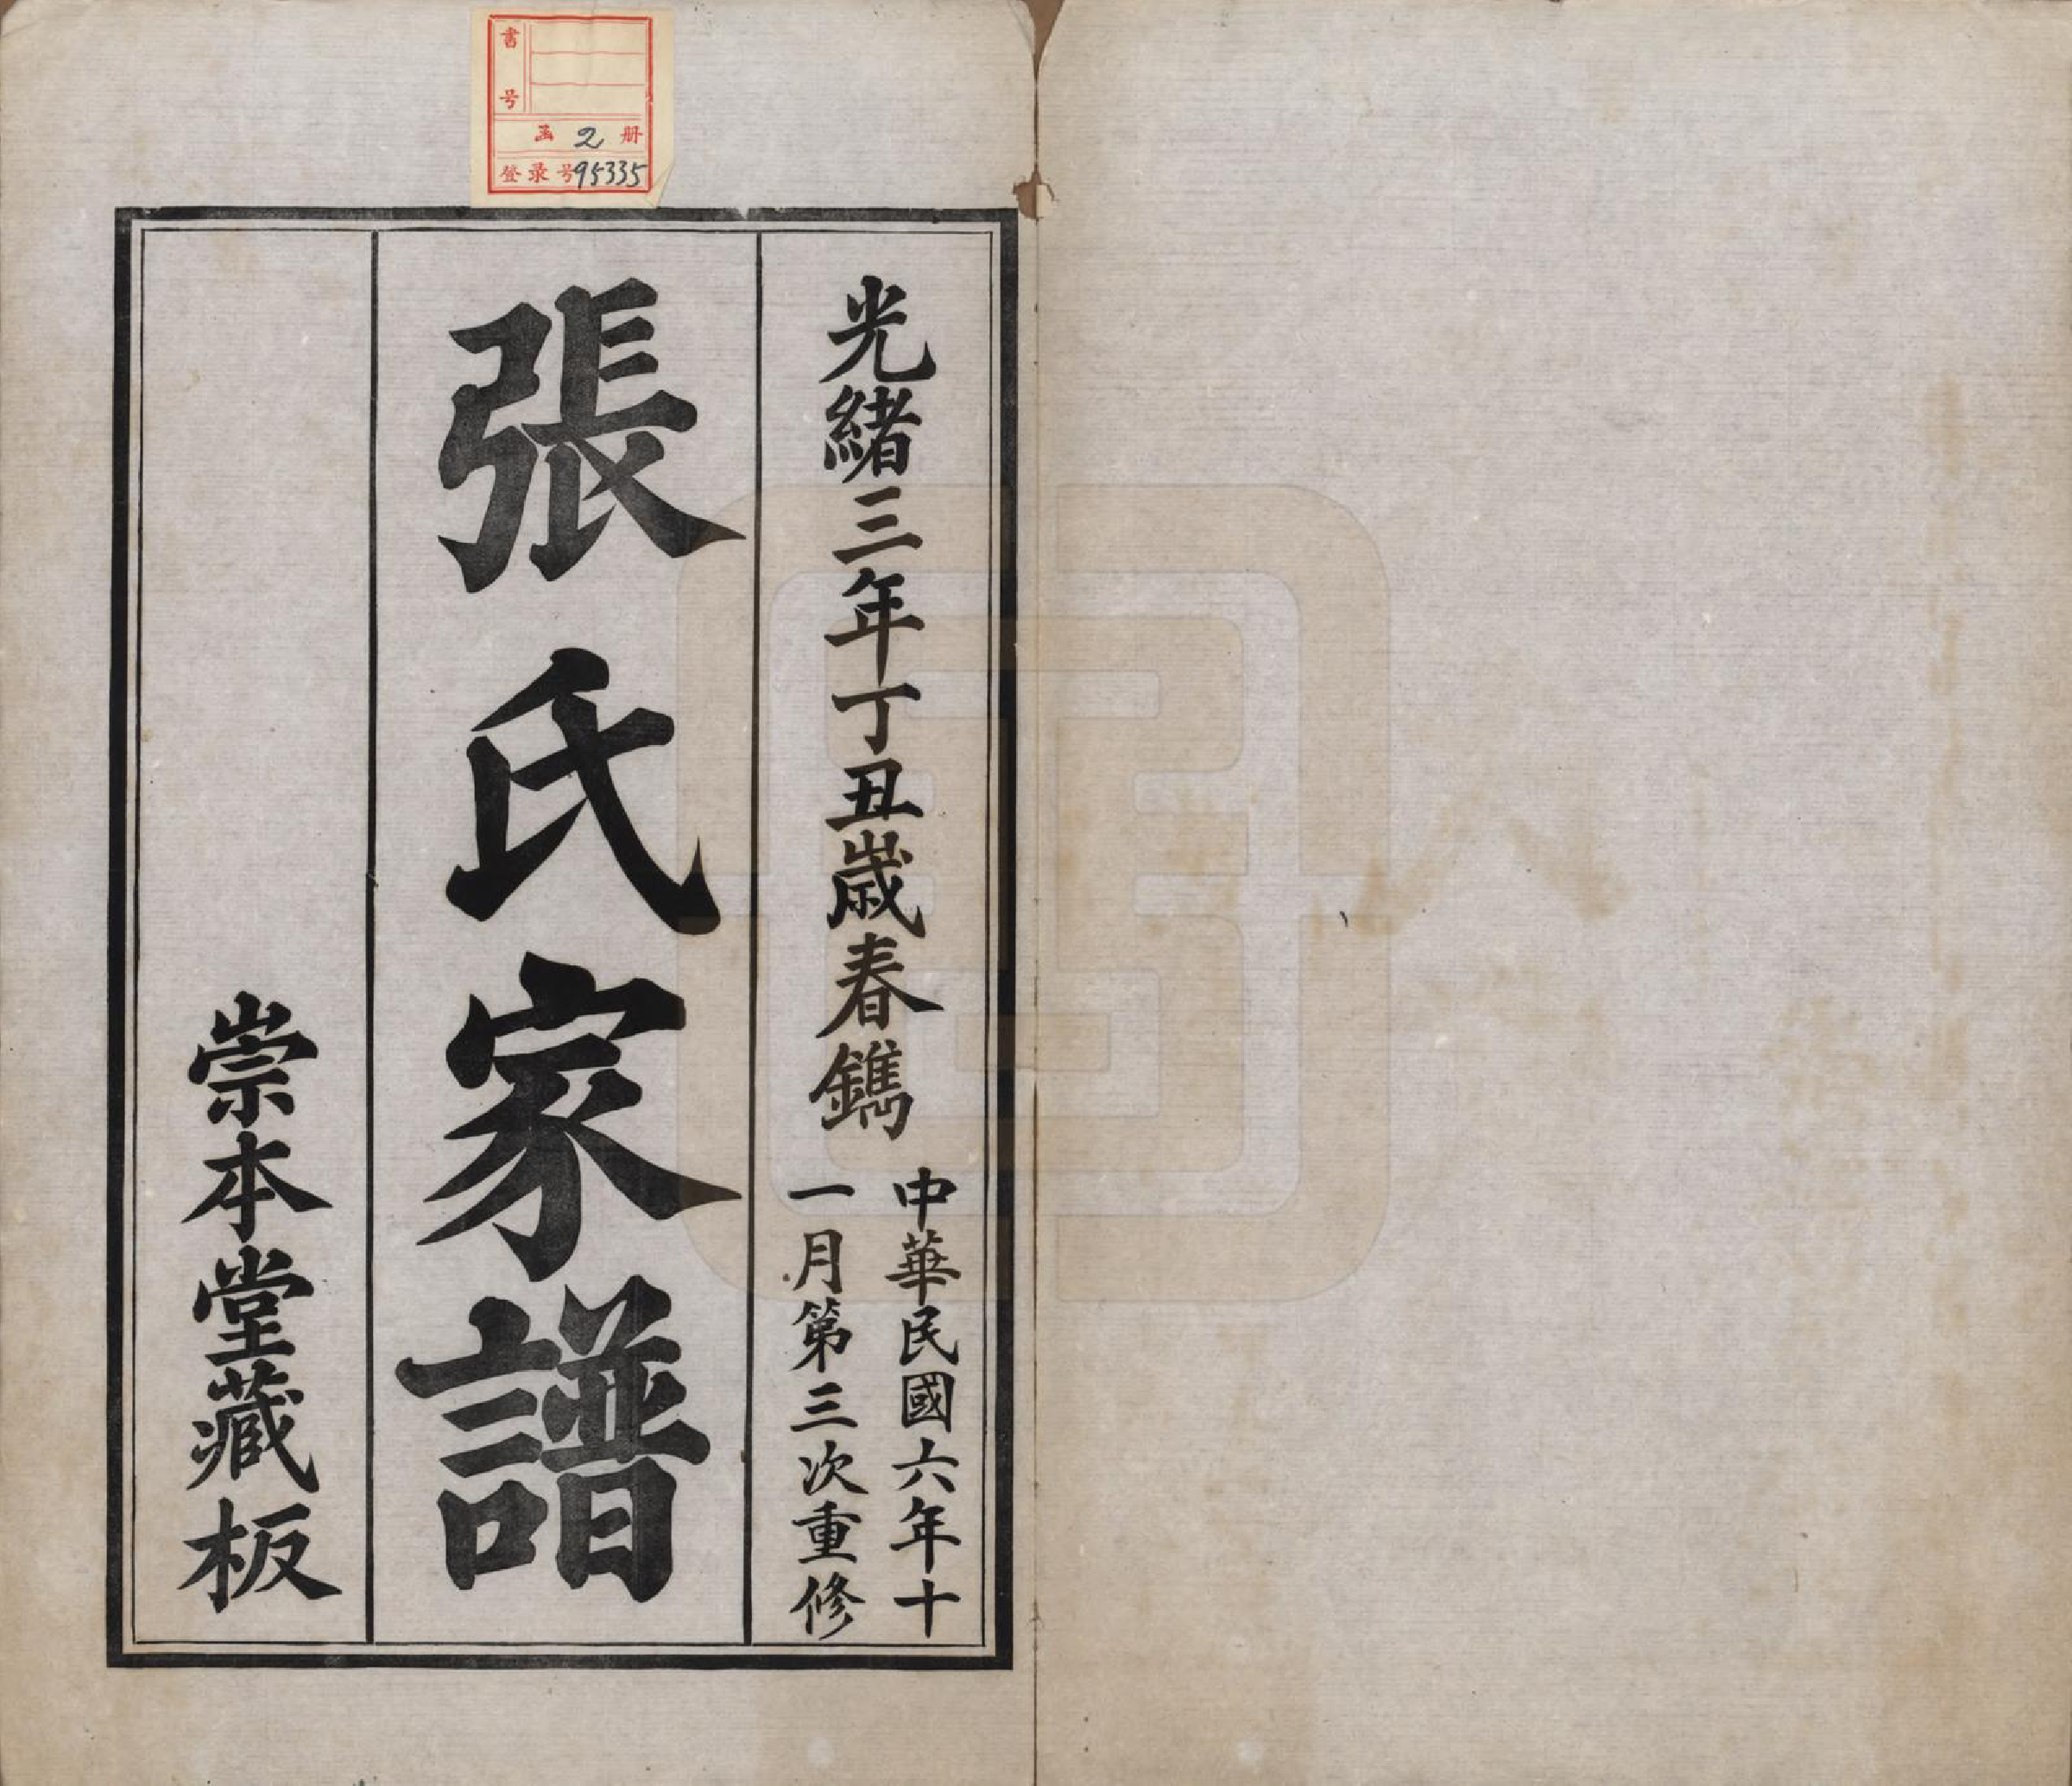 書号
函 2 册
登录号95335
光緒三年丁丑歲春鐫
中華民國六年十
一月第三次重修
張氏家譜
崇本堂藏板